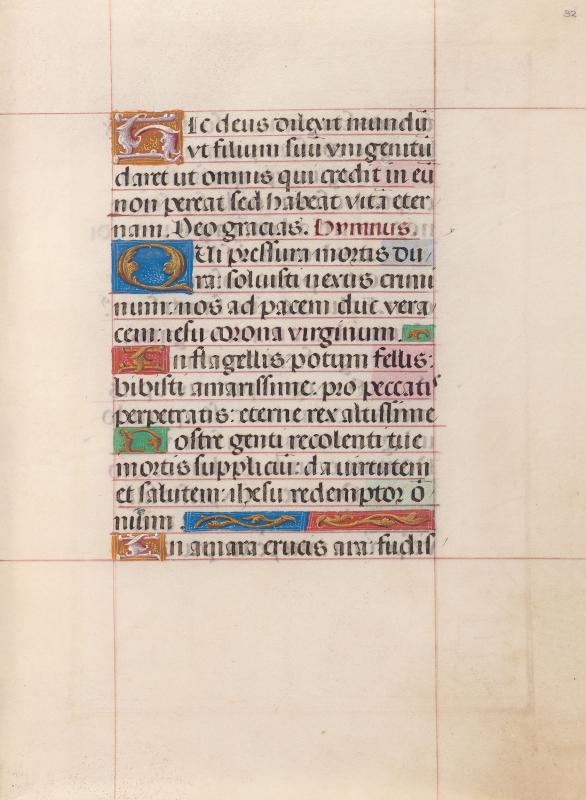 32
Sic deus dilexit mundū
vt filium suū vnigenitū
daret ut omnis qui credit in eū
non pereat sed habeat vitā eter
nam. Deo gracias. Hymnus.
Qui pressura mortis du
ra: soluisti nexus crimi
num: nos ad pacem duc vera
cem: iesu corona virginum.
In flagellis potum fellis:
bibisti amarissime: pro peccatis
perpetratis: eterne rex altissime
Nostre genti recolenti tue
mortis suppliciū: da uirtutem
et salutem: ihesu redemptor o
nium.
In amara crucis ara: fudis